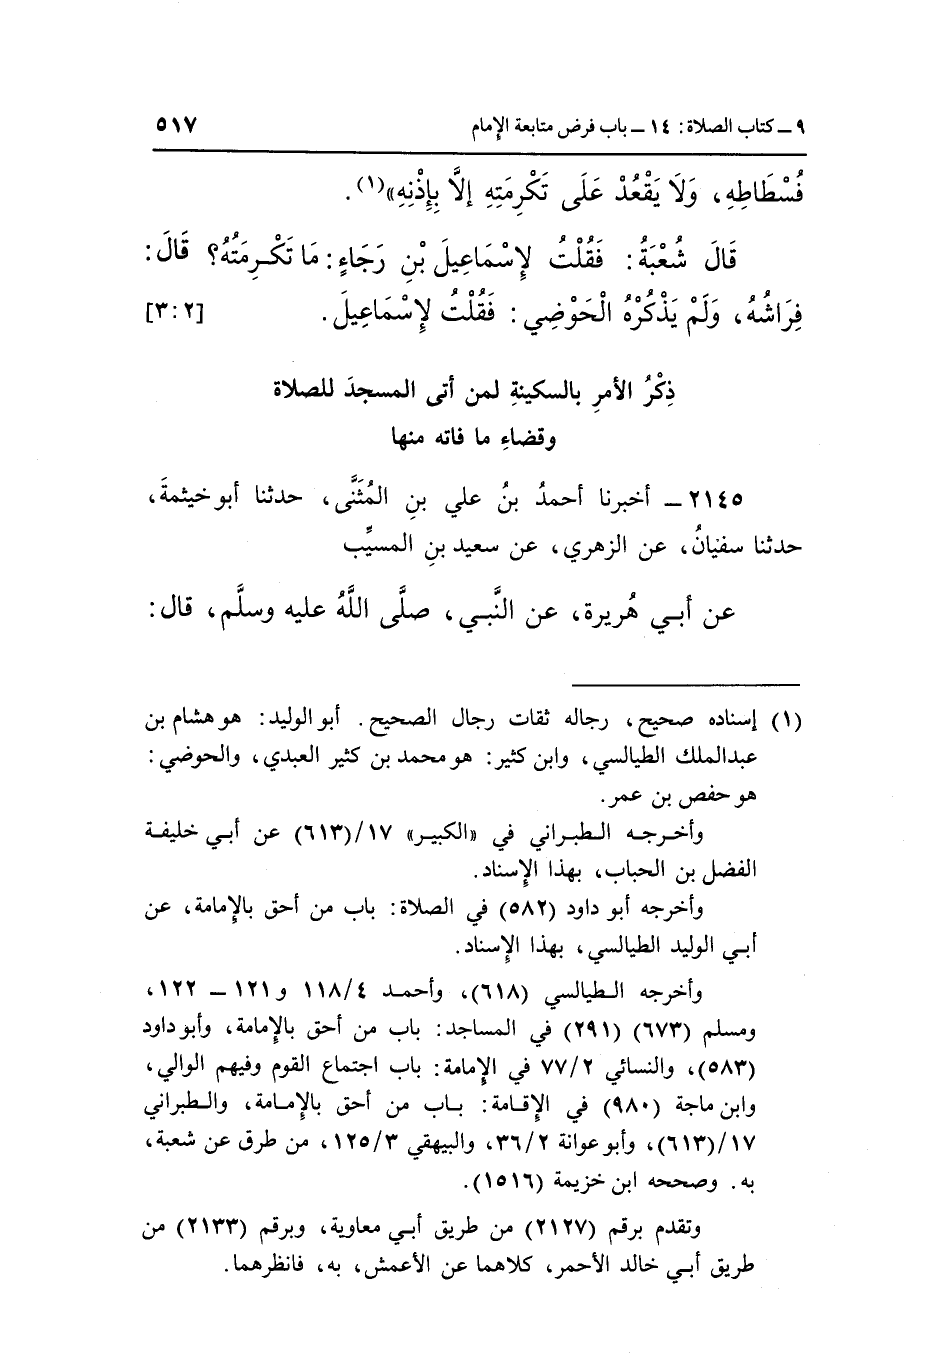 ٩ ــ كتاب الصلاة: ١٤ ــ باب فرض متابعة الإمام ٥١٧
فُسْطَاطِهِ، وَلَا يَقْعُدْ عَلَى تَكْرِمَتِهِ إلَّا بِإِذْنِهِ»(١).
قَالَ شُعْبَةُ: فَقُلْتُ لإِسْمَاعِيلَ بْنِ رَجَاءٍ: مَا تَكْرِمَتُهُ؟ قَالَ:
فِرَاشُهُ، وَلَمْ يَذْكُرْهُ الْحَوْضِي: فَقُلْتُ لإِسْمَاعِيلَ. [٣:٢]
ذِكْرُ الأمرِ بالسكينةِ لمن أتى المسجدَ للصلاة
وقضاءِ ما فاته منها
٢١٤٥ ــ أخبرنا أحمدُ بنُ علي بنِ المُثَنَّى، حدثنا أبو خيثمةَ،
حدثنا سفيانُ، عن الزهري، عن سعيد بنِ المسيِّب
عن أبي هُريرة، عن النَّبي، صلَّى اللَّهُ عليه وسلَّم، قال:
(١) إسناده صحيح، رجاله ثقات رجال الصحيح. أبو الوليد: هو هشام بن
عبدالملك الطيالسي، وابن كثير: هو محمد بن كثير العبدي، والحوضي:
هو حفص بن عمر.
وأخرجه الطبراني في «الكبير» ١٧/(٦١٣) عن أبي خليفة
الفضل بن الحباب، بهذا الإسناد.
وأخرجه أبو داود (٥٨٢) في الصلاة: باب من أحق بالإمامة، عن
أبي الوليد الطيالسي، بهذا الإسناد.
وأخرجه الطيالسي (٦١٨)، وأحمد ١١٨/٤ و١٢١ ــ ١٢٢،
ومسلم (٦٧٣) (٢٩١) في المساجد: باب من أحق بالإمامة، وأبو داود
(٥٨٣)، والنسائي ٧٧/٢ في الإمامة: باب اجتماع القوم وفيهم الوالي،
وابن ماجة (٩٨٠) في الإقامة: باب من أحق بالإمامة، والطبراني
١٧/(٦١٣)، وأبو عوانة ٣٦/٢، والبيهقي ١٢٥/٣، من طرق عن شعبة،
به. وصححه ابن خزيمة (١٥١٦).
وتقدم برقم (٢١٢٧) من طريق أبي معاوية، وبرقم (٢١٣٣) من
طريق أبي خالد الأحمر، كلاهما عن الأعمش، به، فانظرهما.